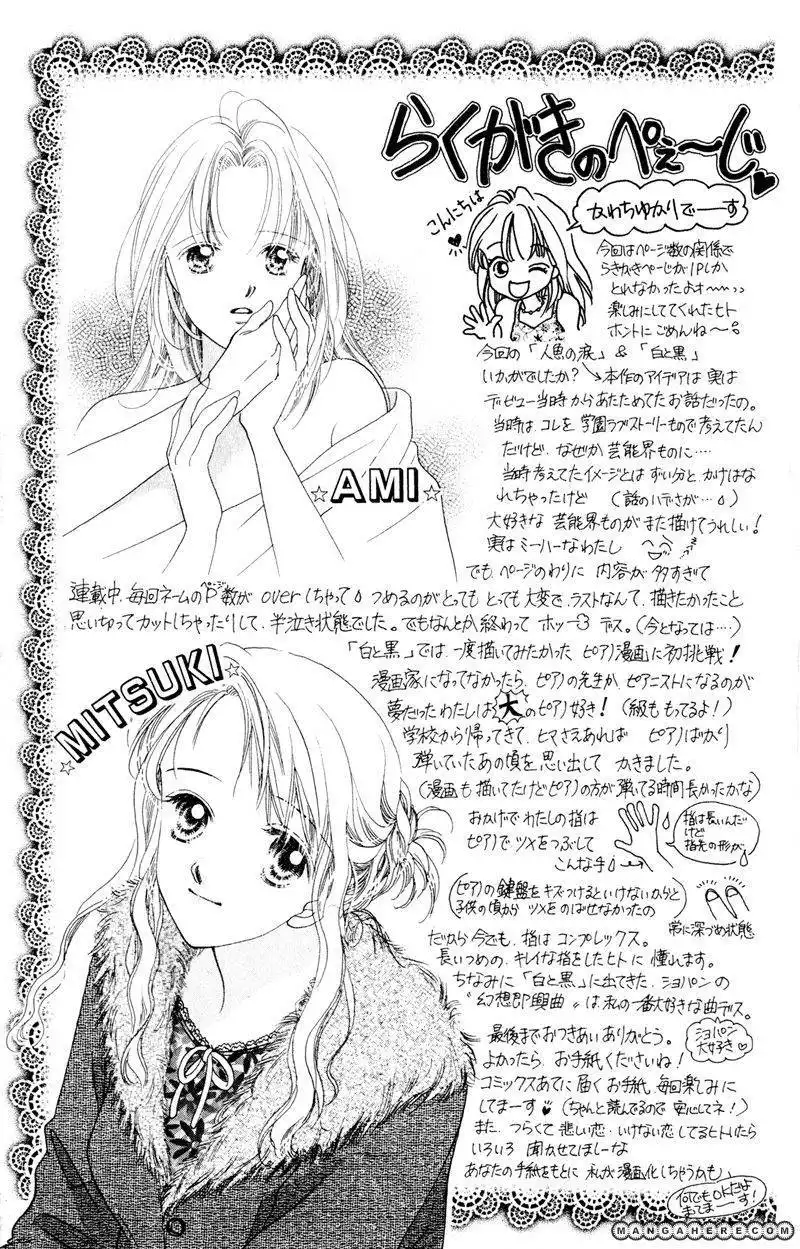 らくがきのぺぇ〜じ♥
こんにちは
かわちゆかりでーす
今回はページ数の関係で
らきがきぺーじが1Pしか
とれなかったよォ〜
楽しみにしててくれたヒト
ホントにごめんね〜
今回の「人魚の涙」&「白と黒」
いかがでしたか?→本作のアイデアは実は
デビュー当時からあたためてたお話だったの。
当時はコレを学園ラブストーリーもので考えてたん
だけど、なぜか芸能界ものに‥‥
当時考えてたイメージとはずい分と、かけはな
れちゃったけど (話のハデさが‥‥)
大好きな芸能界ものがまた描けてうれしい!
実はミーハーなわたし
でも、ページのわりに内容が多すぎて
☆AMI☆
連載中、毎回ネームのP数がoverしちゃって つめるのがとってもとっても大変で、ラストなんて、描きたかったこと
ページ
思い切ってカットしちゃったりして、半泣き状態でした。でもなんとか終わってホッ デス。(今となっては‥‥)
「白と黒」では一度描いてみたかったピアノ漫画に初挑戦!
漫画家になってなかったら、ピアノの先生か、ピアニストになるのが
夢だったわたしは大のピアノ好き!(級ももってるよ!)
学校から帰ってきて、ヒマさえあれば ピアノばかり
弾いていたあの頃を思い出して かきました。
(漫画も描いてたけどピアノの方が弾いてる時間長かったかな)
☆MITSUKI☆
おかげでわたしの指は
ピアノでツメをつぶして
こんな手
指は長いんだ
けど
指先の形が
(ピアノの鍵盤をキズつけるといけないからと
子供の頃からツメをのばせなかったの)
常に深づめ状態
だから今でも、指はコンプレックス。
長いつめの、キレイな指をしたヒトに憧れます。
ちなみに「白と黒」に出てきた、ショパンの
“幻想即興曲”は私の一番大好きな曲デス。
ショパン
大好き
最後までおつきあいありがとう。
よかったら、お手紙くださいね!
コミックスあてに届くお手紙、毎回楽しみに
してまーす♥(ちゃんと読んでるので安心してネ!)
また、つらくて悲しい恋・いけない恋してるヒトいたら
いろいろ聞かせてほしーな
あなたの手紙をもとに私が漫画化しちゃうかも、
何でもOKだよ
まってまーす!
MANGAHERE.COM